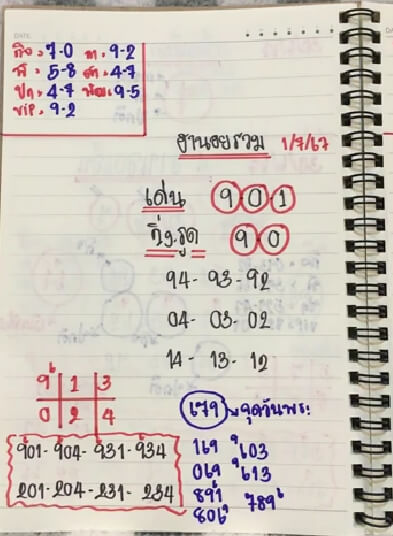 DATE
กิจ = 7-0 ท = 9-2
พิ = 5-8 สท = 4-7
ปก = 4-7 พัฒ = 9-5
VIP = 9-2
ฮานอยรวม 1/7/67
เด่น 9 0 1
วิ่ง.รูด 9 0
94- 93- 92
04- 03- 02
14- 13- 12
9 1 3
0 2 4
679 จุดวันพระ
901- 904- 931- 934
201- 204- 231- 234
169 603
069 613
891 789
806